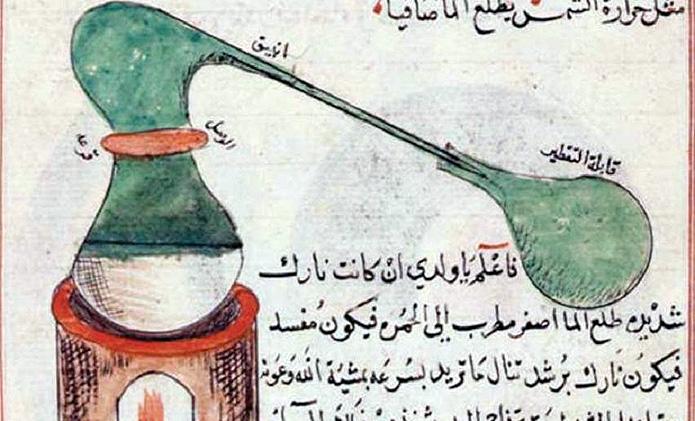 مثل حرارة الشمس يطلع الما صافيا
انبيق
الوصل
قرعه
قابلة التقطير
فاعلم يا ولدي ان كانت نارك
شديده طلع الما اصفر مطرب الى الحمره فيكون مفسد
فيكون نارك برشد تنال ما تريد بسرعه بمشية الله وعونه